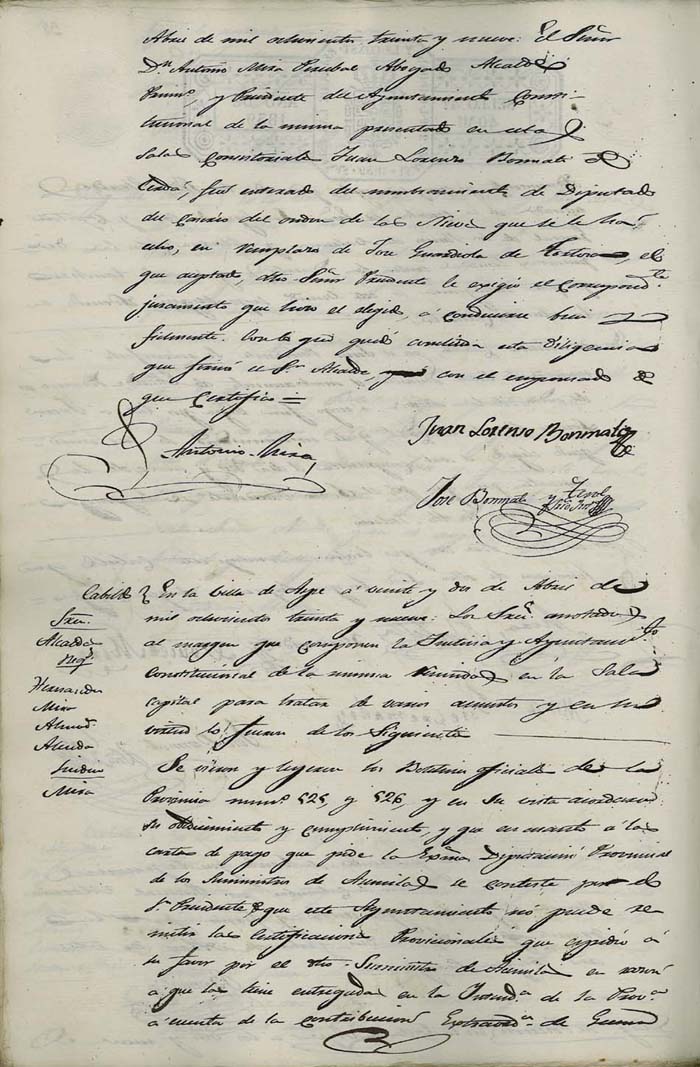 Abril de mil ochocientos treinta y nueve: El Señor
Dn. Antonio Mira Percebal Abogado Alcalde
Primo. y Presidente del Ayuntamiento Consti-
tucional de la misma presentado en esta
Sala Consistorial Juan Lorenzo Bonmati de
Cerdá, fue enterado del nombramiento de Diputado
del Caserio del orden de las Nieves que se le há
echo, en reemplazo de Jose Guardiola de el
que aceptado, dho Señor Presidente le exigio el correspondte.
juramento que hizo el elegido, á conducirse bien
fielmente. Con lo que quedó concluida esta Diligencia
que firmó el Sr. Alcalde, con el empresado de
que Certifico =
Juan Lorenzo Bonmati
Antonio Mira
Jose Bonmati y Terol
Srio. Into.
Cabildo } En la Villa de Aspe á veinte y dos de Abril de
mil ochocientos treinta y nueve: Los Sres. anotados
al margen que componen la Justicia y Ayuntamto.
constitucional de la misma reunidos en la Sala
capital para tratar de varios asuntos y en su
virtud lo fueron de los Siguientes
Sres.
Alcalde
Regs.
Hernandez
Mira
Almodr.
Almeda
Sindico
Mira
Se vieron y leyeron los Boletines oficiales de la
Provincia numos. 525 y 526, y en su vista acordaron
su obedecimiento y cumplimiento, y que en cuanto á las
cartas de pago que pide la Exma. Diputacion Provincial
de los Suministros de se conteste por el
Sr. Presidente que este Ayuntamiento no puede re-
mitir las Certificaciones Provisionales que expidió á
su favor por el dho Suministro de en razon
á que las tiene entregadas en la Intenda. de la Prova.
á cuenta de la contribucion Extraorda. de Guerra